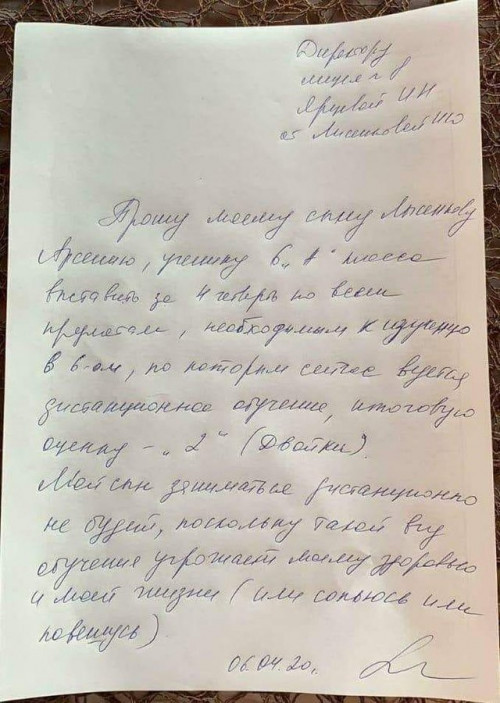 Директору
лицея № 8
Ярцевой И Н
от Лысенковой И Ю
Прошу моему сыну Лысенкову
Арсению, ученику 6 „А" класса
выставить за 4 четверть по всем
предметам, необходимым к изучению
в 6-ом, по которым сейчас ведется
дистанционное обучение, итоговую
оценку - „2" (Двойки).
Мой сын заниматься дистанционно
не будет, поскольку такой вид
обучения угрожает моему здоровью
и моей жизни (или сопьюсь или
повешусь).
06.04.20г.